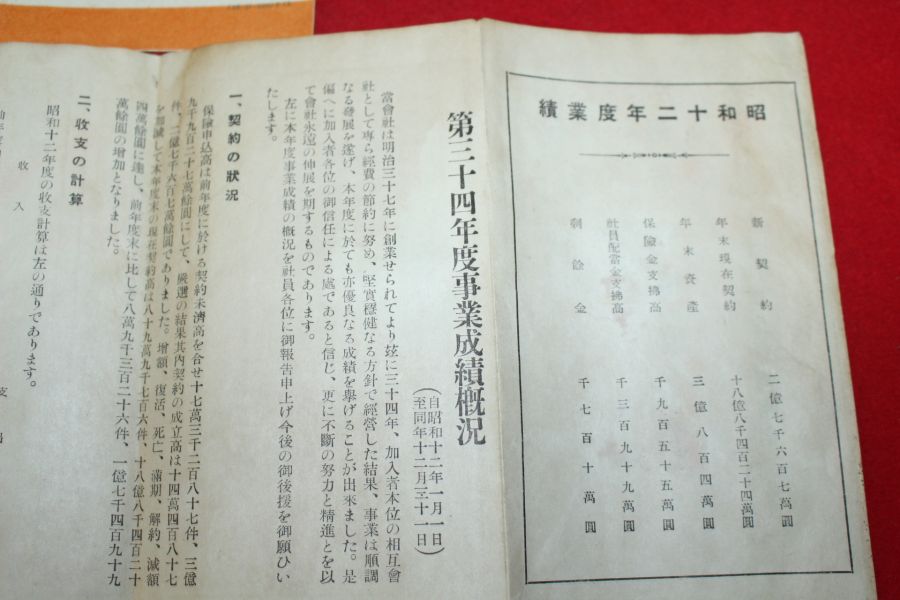 昭和十二年度業績
新契約 二億七千六百七萬圓
年末現在契約 十八億八千四百二十四萬圓
年末資產 三億八百四萬圓
保險金支拂高 千九百五十五萬圓
社員配當金支拂高 千三百九十九萬圓
剩餘金 千七百十萬圓
第三十四年度事業成績概況
(自昭和十二年一月一日
至同年十二月三十一日)
當會社は明治三十七年に創業せられてより玆に三十四年、加入者本位の相互會
社として專ら經費の節約に努め、堅實穩健なる方針で經營した結果、事業は順調
なる發展を遂げ、本年度に於ても亦優良なる成績を擧げることが出來ました。是
偏へに加入者各位の御信任による處であると信じ、更に不斷の努力と精進とを以
て會社永遠の伸展を期するものであります。
左に本年度事業成績の概況を社員各位に御報告申上げ今後の御後援を御願ひい
たします。
一、契約の狀況
保險申込高は前年度に於ける契約未濟高を合せ十七萬三千二百八十七件、三億
九千九百二十七萬餘圓にして、嚴選の結果其内契約の成立高は十四萬四百八十七
件、二億七千六百七萬餘圓でありました。增額、復活、死亡、滿期、解約、減額
を加減して本年度末の現在契約高は八十九萬九千七百六件、十八億八千四百二十
四萬餘圓に達し、前年度末に比して八萬九千三百二十六件、一億七千四百九十九
萬餘圓の增加となりました。
二、收支の計算
昭和十二年度の收支計算は左の通りであります。
收入
支